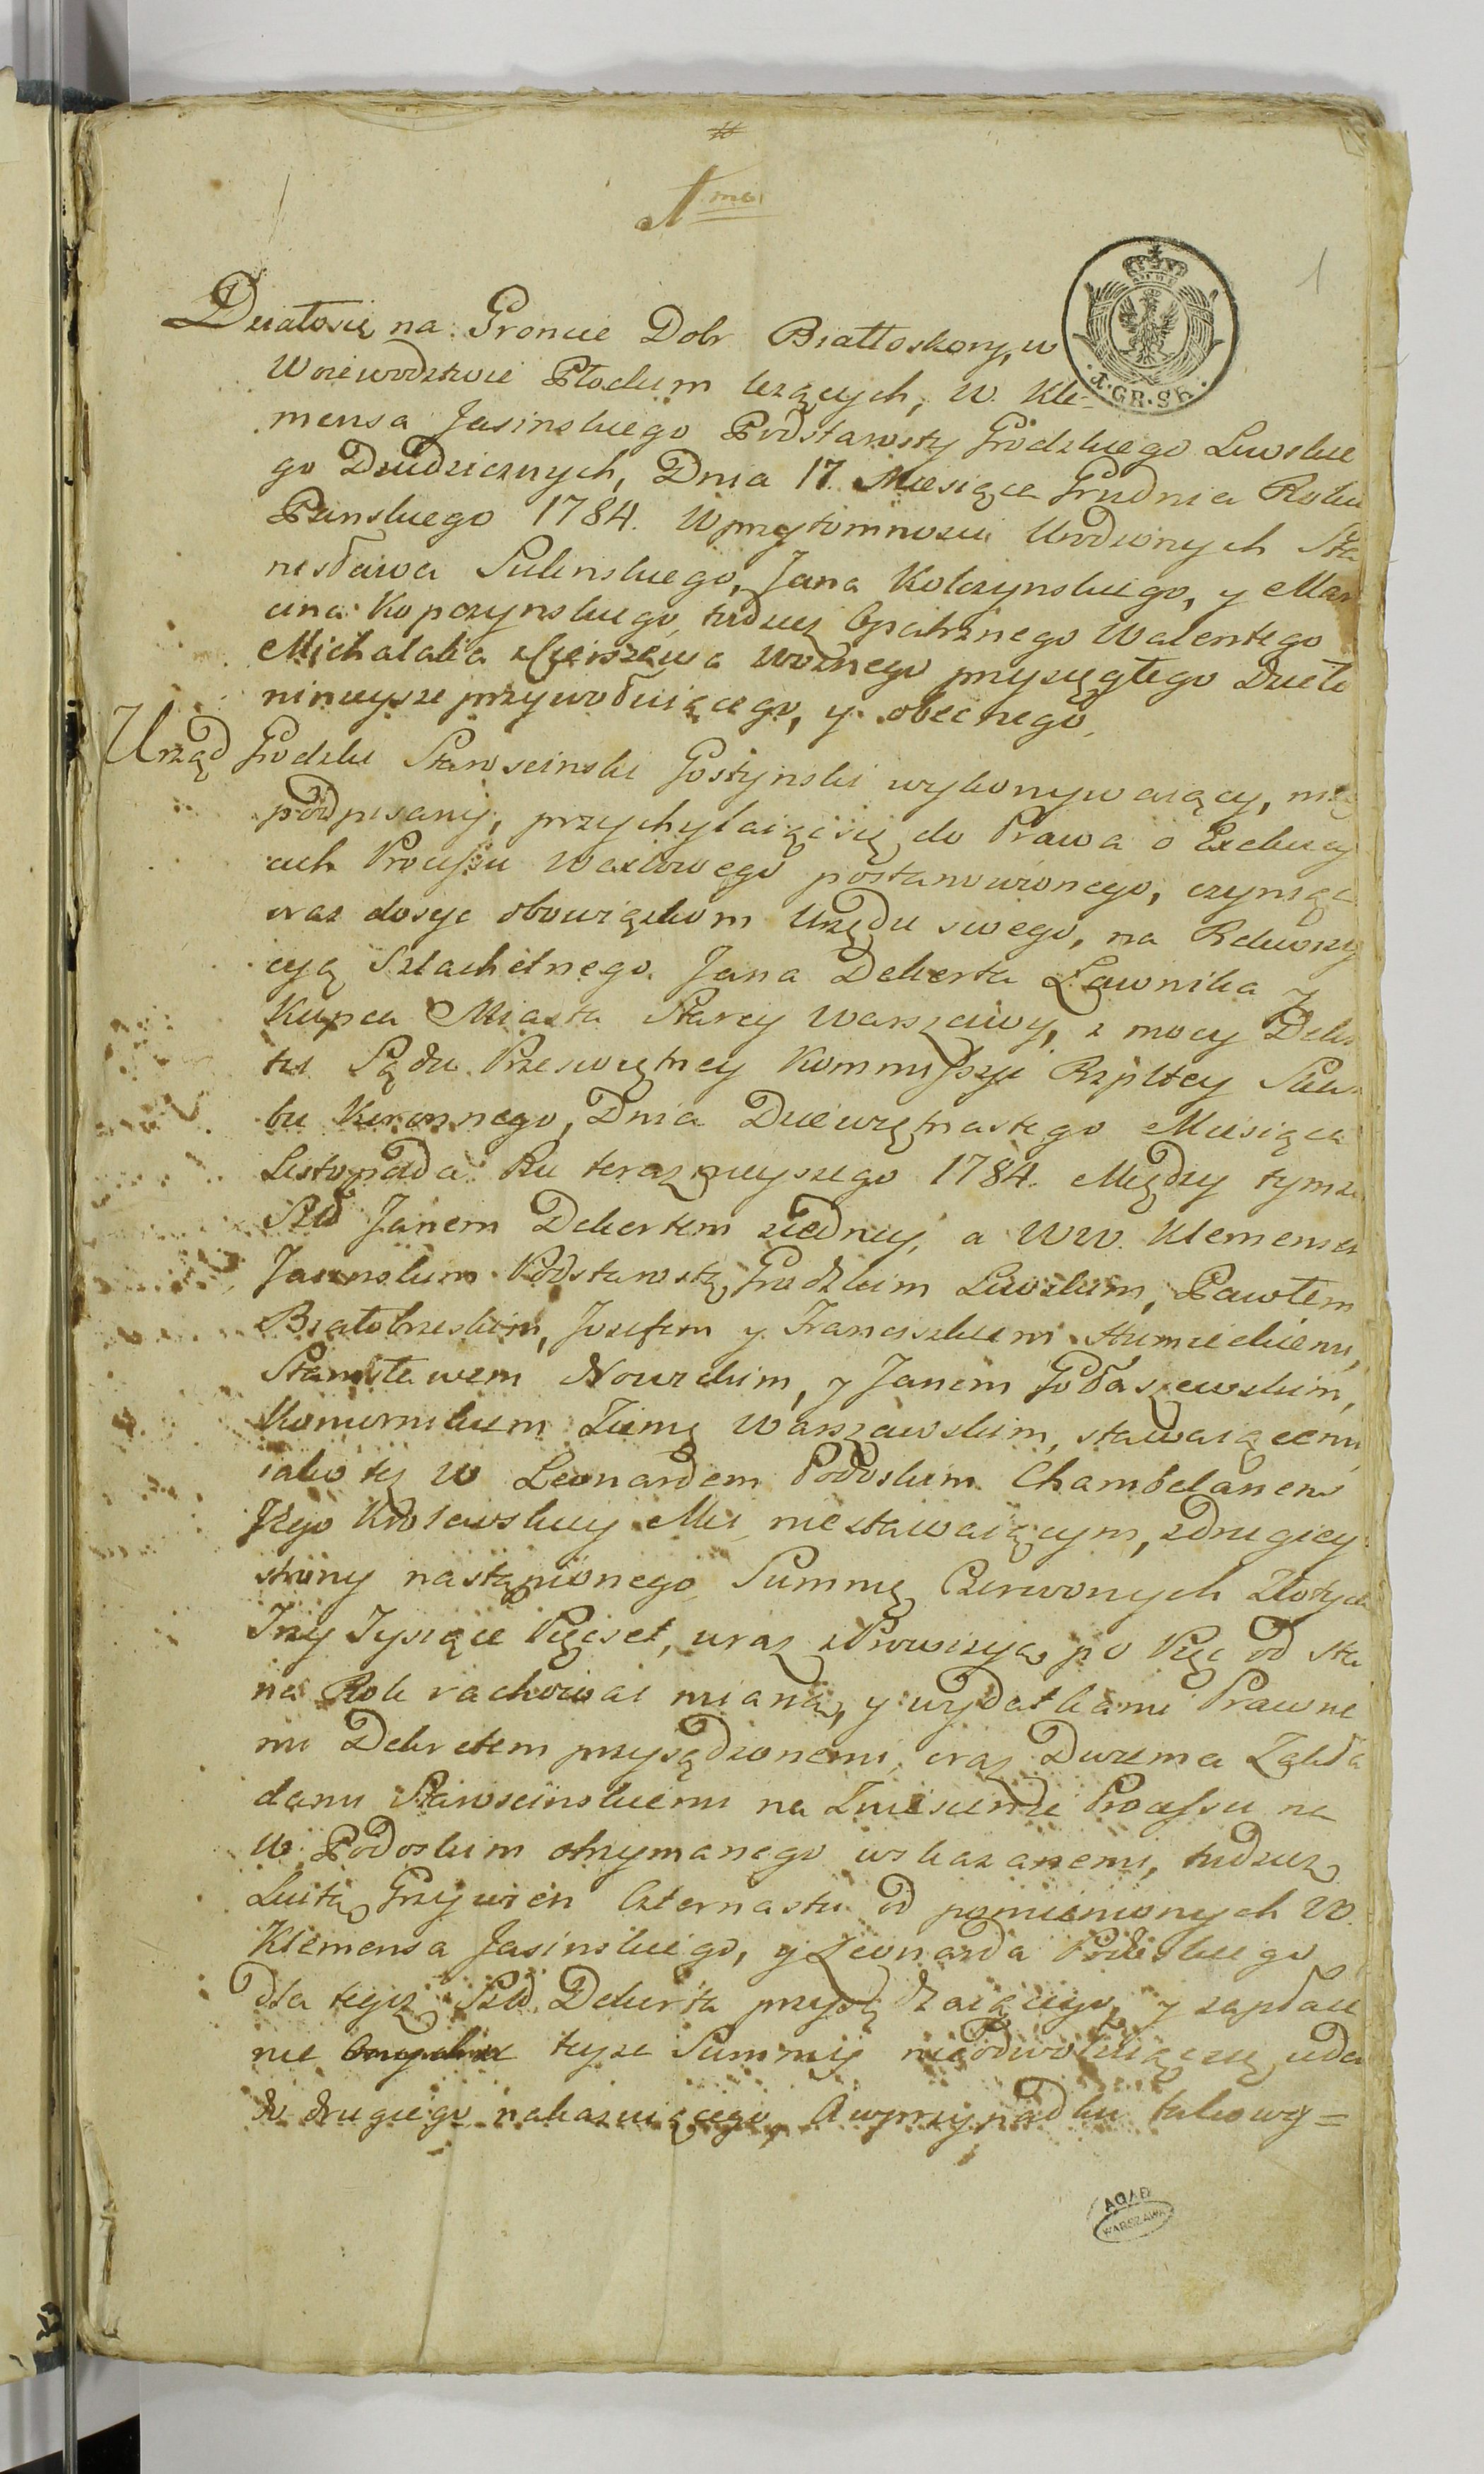 1mo
1
I. GR. SR.
Działosię na Groncie Dobr Białłoskory, w
Woiewodztwie Płockim leżących, W. Kle-
mensa Jasinskiego Podstarosty Grodzkiego Liwskie
go Dziedzicznych, Dnia 17. Miesiąca Grudnia Roku
Panskiego 1784. W przytomnosci Urodzonych Sta
nisława Sulinskiego, Jana Kolczynskiego, y Mar
cina Kopczynskiego, tudzież Opatrznego Walentego
Michalaka z Woznego przysięgłego Dzieło
ninieysze przywołuiącego, y obecnego,
Urząd Grodzki Staroscinski Gostynski wykonywaiący, niżey
podpisany, przychylaiącsię do Prawa o Exekucy
ach Processu Wexlowego postanowionego, czyniąc
oraz dosyc obowiązkom Urzędu swego, na Rekwizy
cyą Szlachetnego Jana Dekerta Ławnika y
Kupca Miasta Starey Warszawy, z mocy Dekre
tu Sądu Przeswiętney Kommissyi Rzpltey Skar
bu Koronnego, Dnia Dziewiętnastego Miesiąca
Listopada Ru teraznieyszego 1784. Między tymże
Szld Janem Dekertem ziedney, a WW. Klemensem
Jasinskim Podstarostą Grodzkim Liwskim, Pawłem
Białobrzeskim, Jozefem y Franciszkiem Humieckiemi,
Stanisławem Nowickim, y Janem Gołaszewskim,
Komornikiem Ziemi Warszawskim, stawaiącemi,
iako też W Leonardem Podoskim Chambelanem
Jego Krolewskiey Mci, niestawaiącym, zdrugiey
strony nastąpionego, Summę Czerwonych Złotych
Trzy Tysiące Pięcset, wraz z Prowizyą po Pięc od sta
na Rok rachowac mianą, y wydatkami Prawne
mi Dekretem przysądzonemi, oraz Dwiema Zakła
dami Staroscinskiemi na Zniesienie Processu na
W. Podoskim otrzymanego wskazanemi, tudzież
Luitą Grzywien Czternastu od pomienionych W.
Klemensa Jasinskiego, y Leonarda Podoskiego
dla tegoż Szld. Dekerta przysądzaiącego, y zapłace
nie teyże Summy nieodwołuiącsię ieden
do drugiego nakazuiącego, A wprzypadku takowy=
AGAD
WARSZAWA